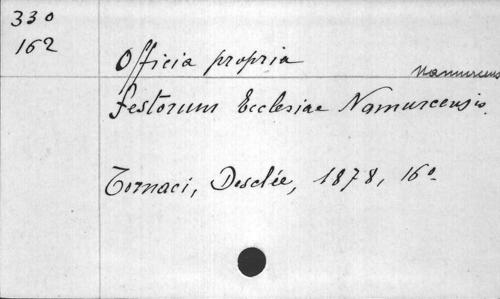 330
162
Officia propria
Namurcens
festorum Ecclesiae Namurcensis.
Tornaci, Desclée, 1878, 16º